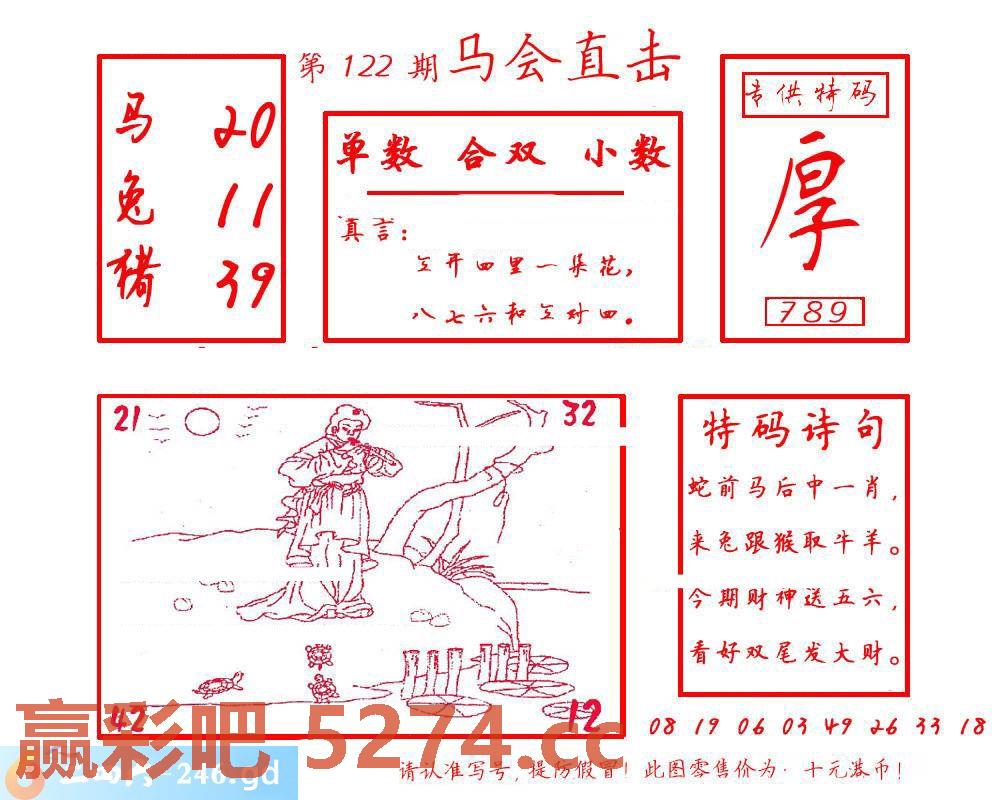 第 122 期 马会直击
马 20
兔 11
猪 39
单数 合双 小数
真言：
三开四里一朵花，
八七六和三对四。
专供特码
厚
789
21
32
42
12
特码诗句
蛇前马后中一肖，
来兔跟猴取牛羊。
今期财神送五六，
看好双尾发大财。
08 19 06 03 49 26 33 18
赢彩吧 5274.cc
-246.gd
请认准写号，提防假冒！此图零售价为·十元港币！